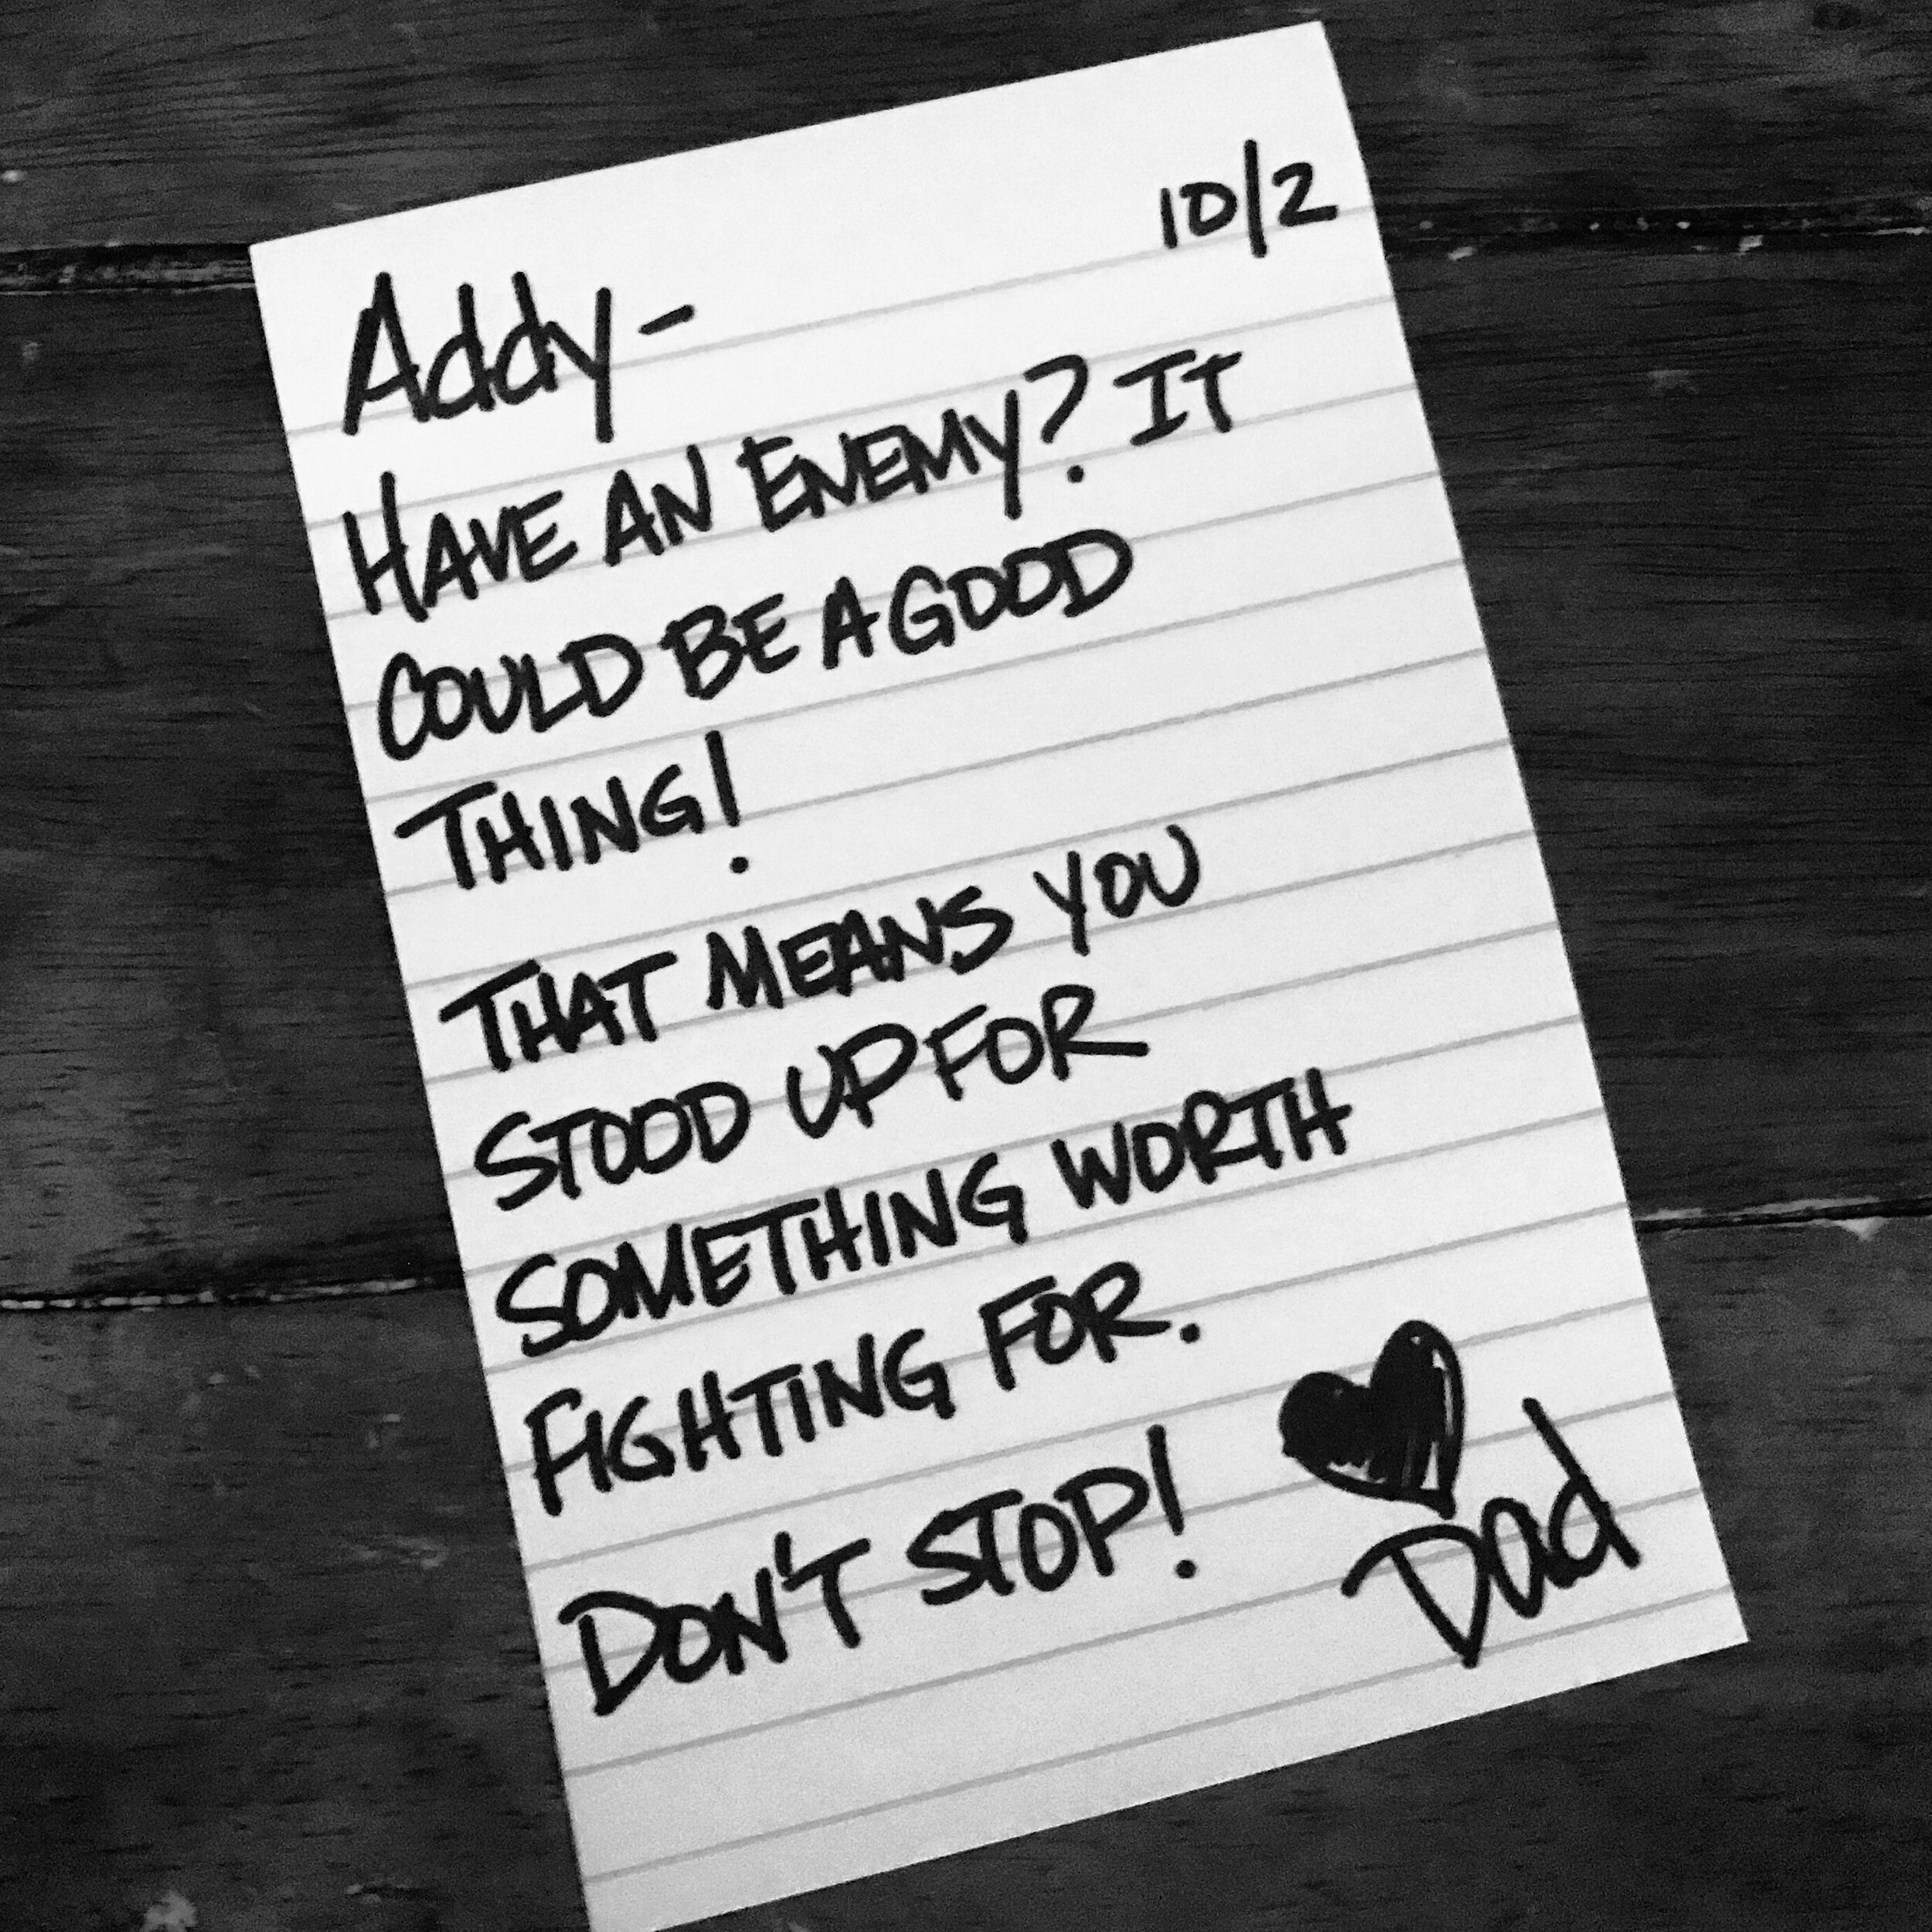 10/2
Addy-
HAVE AN ENEMY? IT
COULD BE A GOOD
THING!
THAT MEANS YOU
STOOD UP FOR
SOMETHING WORTH
FIGHTING FOR.
DON'T STOP!
Dad